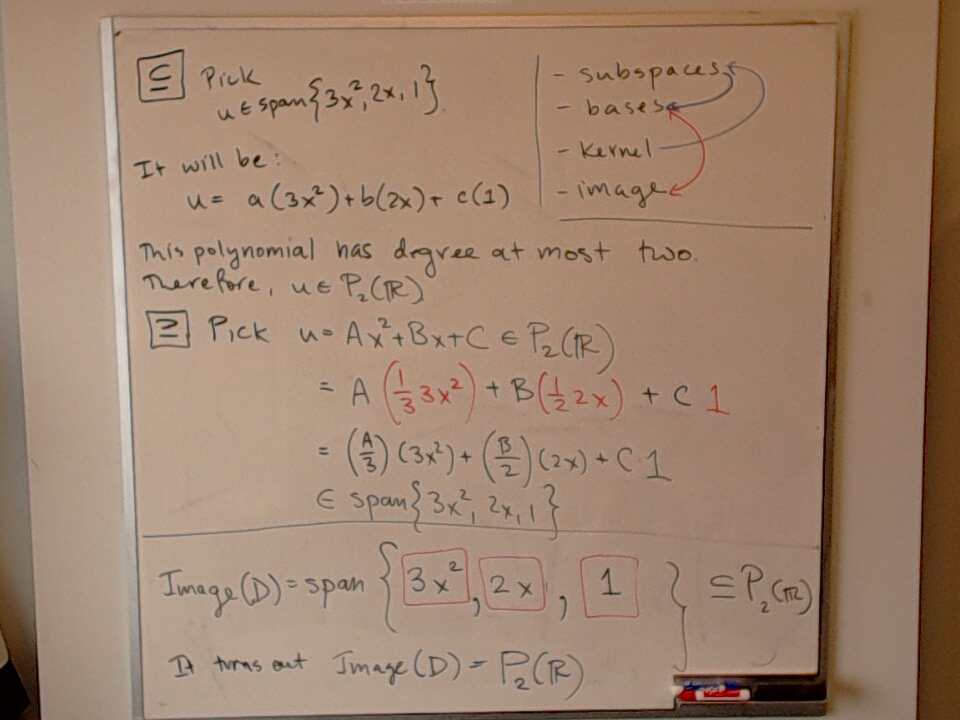 ⊆ Pick
u ∈ span{3x², 2x, 1}.
It will be:
u = a(3x²)+b(2x)+ c(1)
- subspaces
- bases
- kernel
- image
This polynomial has degree at most two.
Therefore, u ∈ P₂(ℝ)
⊇ Pick u = Ax²+Bx+C ∈ P₂(ℝ)
= A (1/3 3x²) + B(1/2 2x) + C 1
= (A/3) (3x²) + (B/2) (2x) + C·1
∈ span{3x², 2x, 1}
Image(D) = span { 3x², 2x, 1 } ⊆ P₂(ℝ)
It turns out Image(D) = P₂(ℝ)